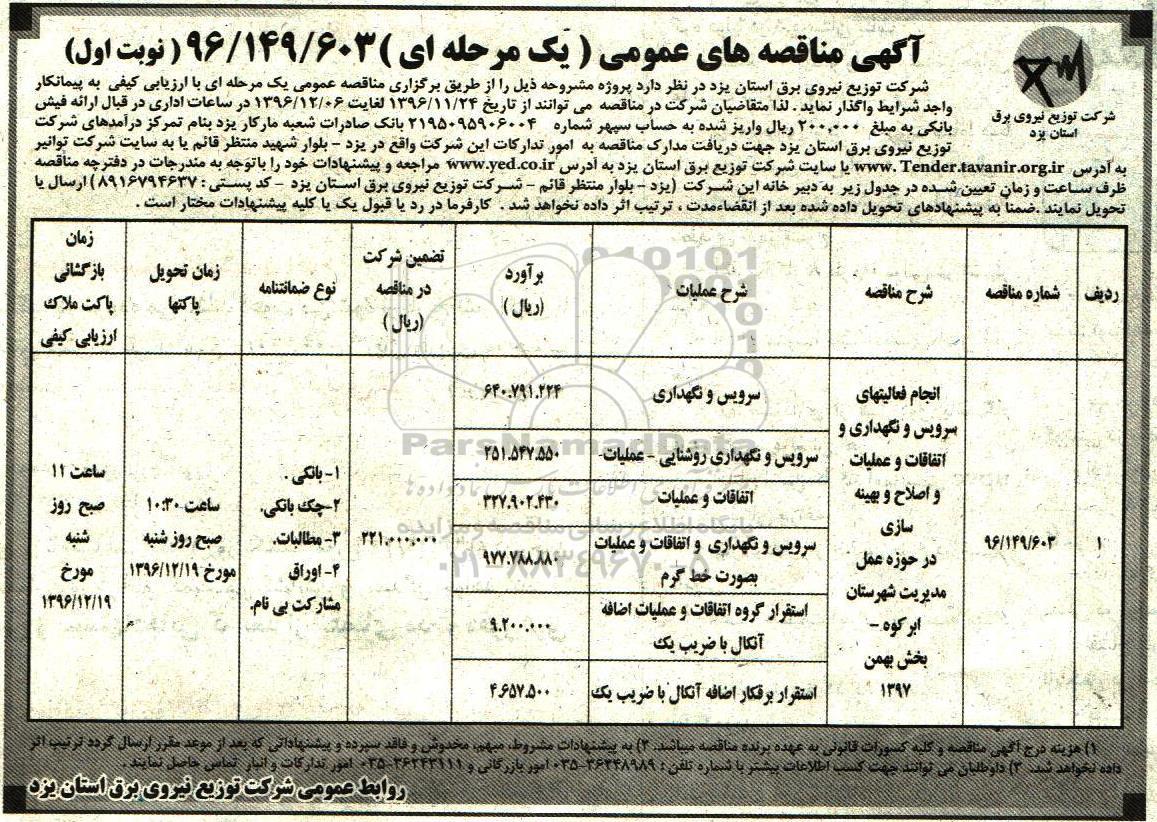 آگهی مناقصه های عمومی ( یک مرحله ای ) ۹۶/۱۴۹/۶۰۳ ( نوبت اول)
شرکت توزیع نیروی برق
استان یزد
شرکت توزیع نیروی برق استان یزد در نظر دارد پروژه مشروحه ذیل را از طریق برگزاری مناقصه عمومی یک مرحله ای با ارزیابی کیفی به پیمانکار
واجد شرایط واگذار نماید . لذا متقاضیان شرکت در مناقصه می توانند از تاریخ ۱۳۹۶/۱۱/۲۴ لغایت ۱۳۹۶/۱۲/۰۶ در ساعات اداری در قبال ارائه فیش
بانکی به مبلغ ۲۰۰,۰۰۰ ریال واریز شده به حساب سپهر شماره ۲۱۹۵۰۹۵۹۰۶۰۰۴ بانک صادرات شعبه مارکار یزد بنام تمرکز درآمدهای شرکت
توزیع نیروی برق استان یزد جهت دریافت مدارک مناقصه به امور تدارکات این شرکت واقع در یزد - بلوار شهید منتظر قائم یا به سایت شرکت توانیر
به آدرس www. Tender.tavanir.org.ir یا سایت شرکت توزیع برق استان یزد به آدرس www.yed.co.ir مراجعه و پیشنهادات خود را باتوجه به مندرجات در دفترچه مناقصه
ظرف ساعت و زمان تعیین شده در جدول زیر به دبیر خانه این شرکت (یزد - بلوار منتظر قائم - شرکت توزیع نیروی برق استان یزد - کد پستی : ۸۹۱۶۷۹۴۶۳۷) ارسال یا
تحویل نمایند .ضمنا به پیشنهادهای تحویل داده شده بعد از انقضاءمدت ، ترتیب اثر داده نخواهد شد . کارفرما در رد یا قبول یک یا کلیه پیشنهادات مختار است .
ردیف
شماره مناقصه
شرح مناقصه
شرح عملیات
برآورد
(ریال )
تضمین شرکت
در مناقصه
(ریال )
نوع ضمانتنامه
زمان تحویل
پاکتها
زمان
بازگشائی
پاکت ملاک
ارزیابی کیفی
۱
۹۶/۱۴۹/۶۰۳
انجام فعالیتهای
سرویس و نگهداری و
اتفاقات و عملیات
و اصلاح و بهینه
سازی
در حوزه عمل
مدیریت شهرستان
ابرکوه -
بخش بهمن
۱۳۹۷
سرویس و نگهداری
۶۴۰.۷۹۱.۲۲۴
سرویس و نگهداری روشنایی - عملیات
۲۵۱.۵۴۷.۵۵۰
اتفاقات و عملیات
۳۲۷.۹۰۲.۴۳۰
سرویس و نگهداری و اتفاقات و عملیات
بصورت خط گرم
۹۷۷.۷۸۸.۸۸۰
استقرار گروه اتفاقات و عملیات اضافه
آنکال با ضریب یک
۹.۲۰۰.۰۰۰
استقرار برقکار اضافه آنکال با ضریب یک
۴.۶۵۷.۵۰۰
۲۲۱.۰۰۰.۰۰۰
۱- بانکی .
۲-چک بانکی.
۳- مطالبات.
۴- اوراق
مشارکت بی نام.
ساعت ۱۰:۳۰
صبح روز شنبه
مورخ ۱۳۹۶/۱۲/۱۹
ساعت ۱۱
صبح روز
شنبه
مورخ
۱۳۹۶/۱۲/۱۹
ParsNamadData
پایگاه اطلاع رسانی مناقصه و مزایده
۰۲۱-۸۸۳۴۹۶۷۰-۵
۱) هزینه درج آگهی مناقصه و کلیه کسورات قانونی به عهده برنده مناقصه میباشد. ۲) به پیشنهادات مشروط، مبهم، مخدوش و فاقد سپرده و پیشنهاداتی که بعد از موعد مقرر ارسال گردد ترتیب اثر
داده نخواهد شد. ۳) داوطلبان می توانند جهت کسب اطلاعات بیشتر با شماره تلفن : ۳۶۲۴۸۹۸۹-۰۳۵ امور بازرگانی و ۳۶۲۴۳۱۱۱-۰۳۵ امور تدارکات و انبار تماس حاصل نمایند .
روابط عمومی شرکت توزیع نیروی برق استان یزد